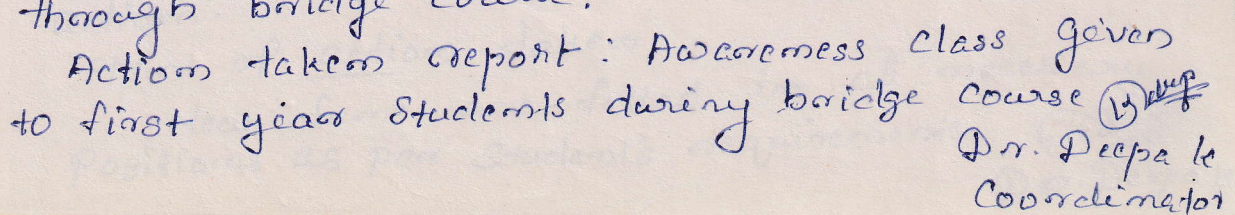 through bridge course.
Action taken report : Awareness class given
to first year students during bridge course
Dr. Deepa k
Coordinator